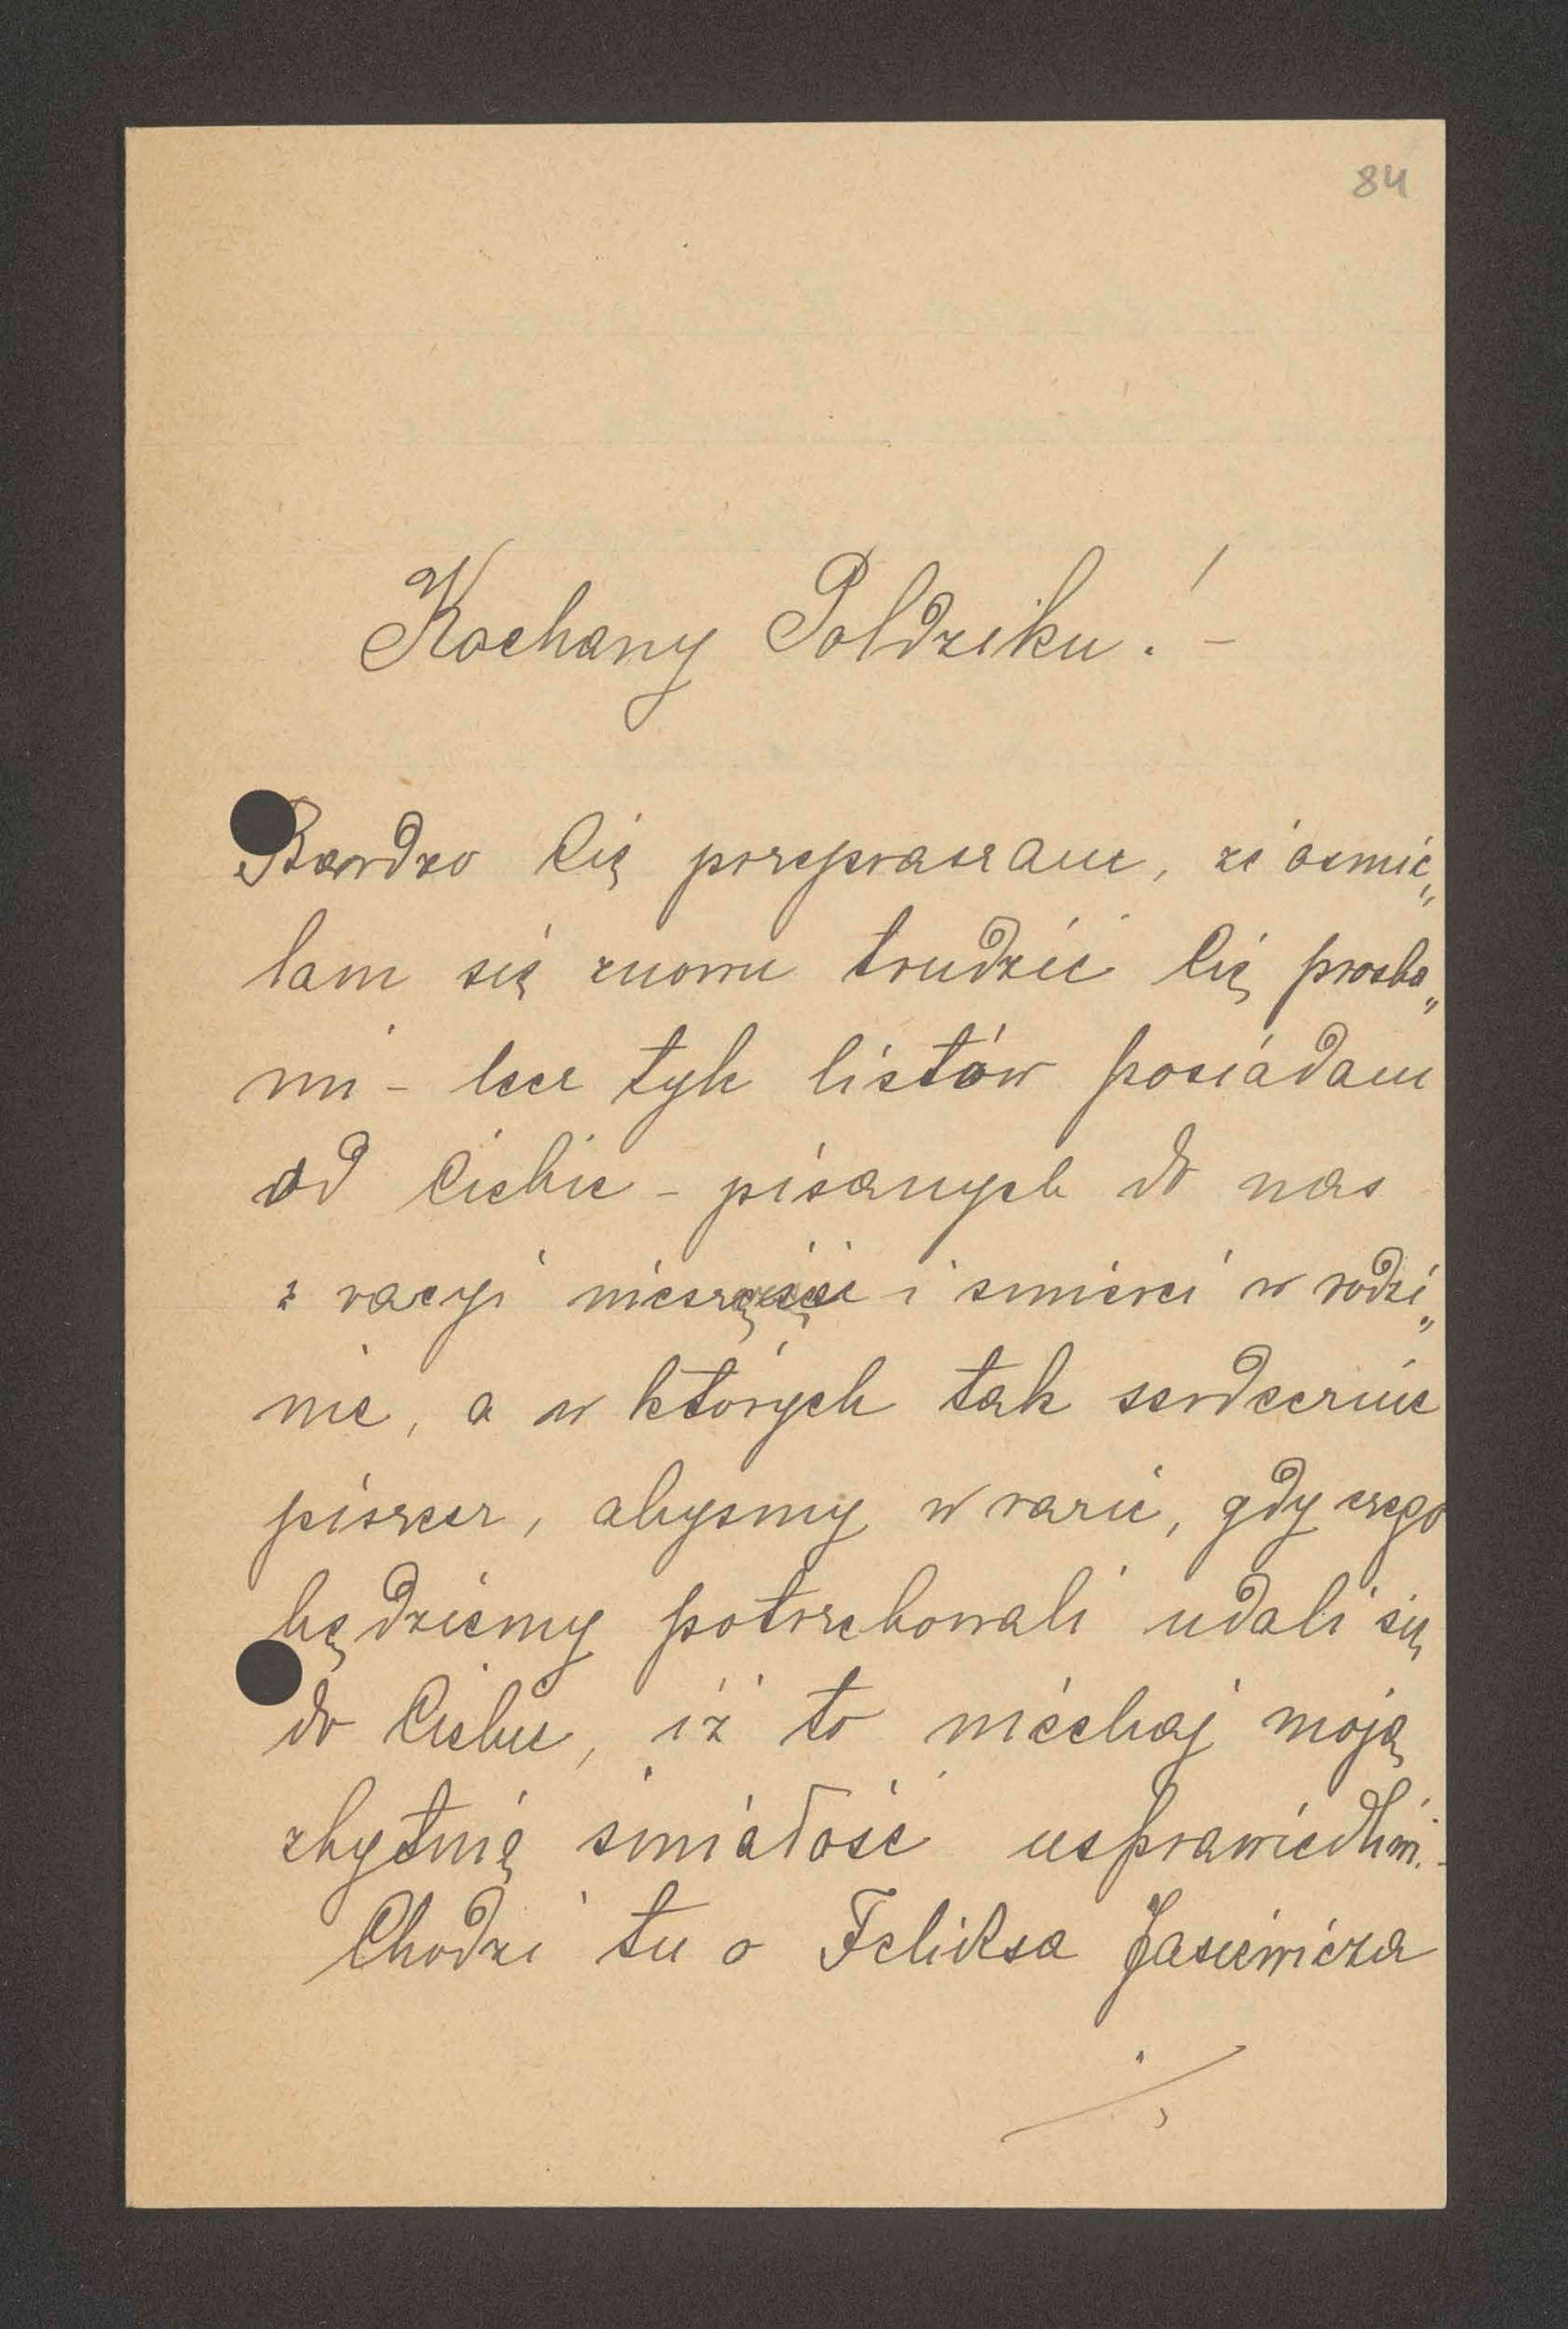 84
Kochany Poldziku! –
Bardzo Cię przepraszam, że ośmie„
lam się znowu trudzić Cię prośba„
mi – lecz tyle listów posiadam
od Ciebie – pisanych do nas
z racyi nieszczęść i śmierci w rodzi„
nie, a w których tak serdecznie
piszesz, abyśmy w razie, gdy czego
będziemy potrzebowali udali się
do Ciebie, iż to niechaj moją
zbytnią śmiałość usprawiedliwi. –
Chodzi tu o Feliksa Jasiewicza
./.